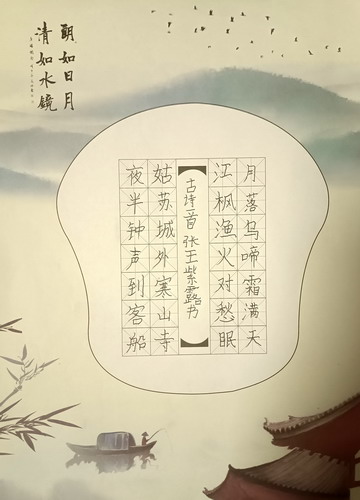 朗如日月
清如水镜
月落乌啼霜满天
江枫渔火对愁眠
古诗一首 张王紫露书
姑苏城外寒山寺
夜半钟声到客船